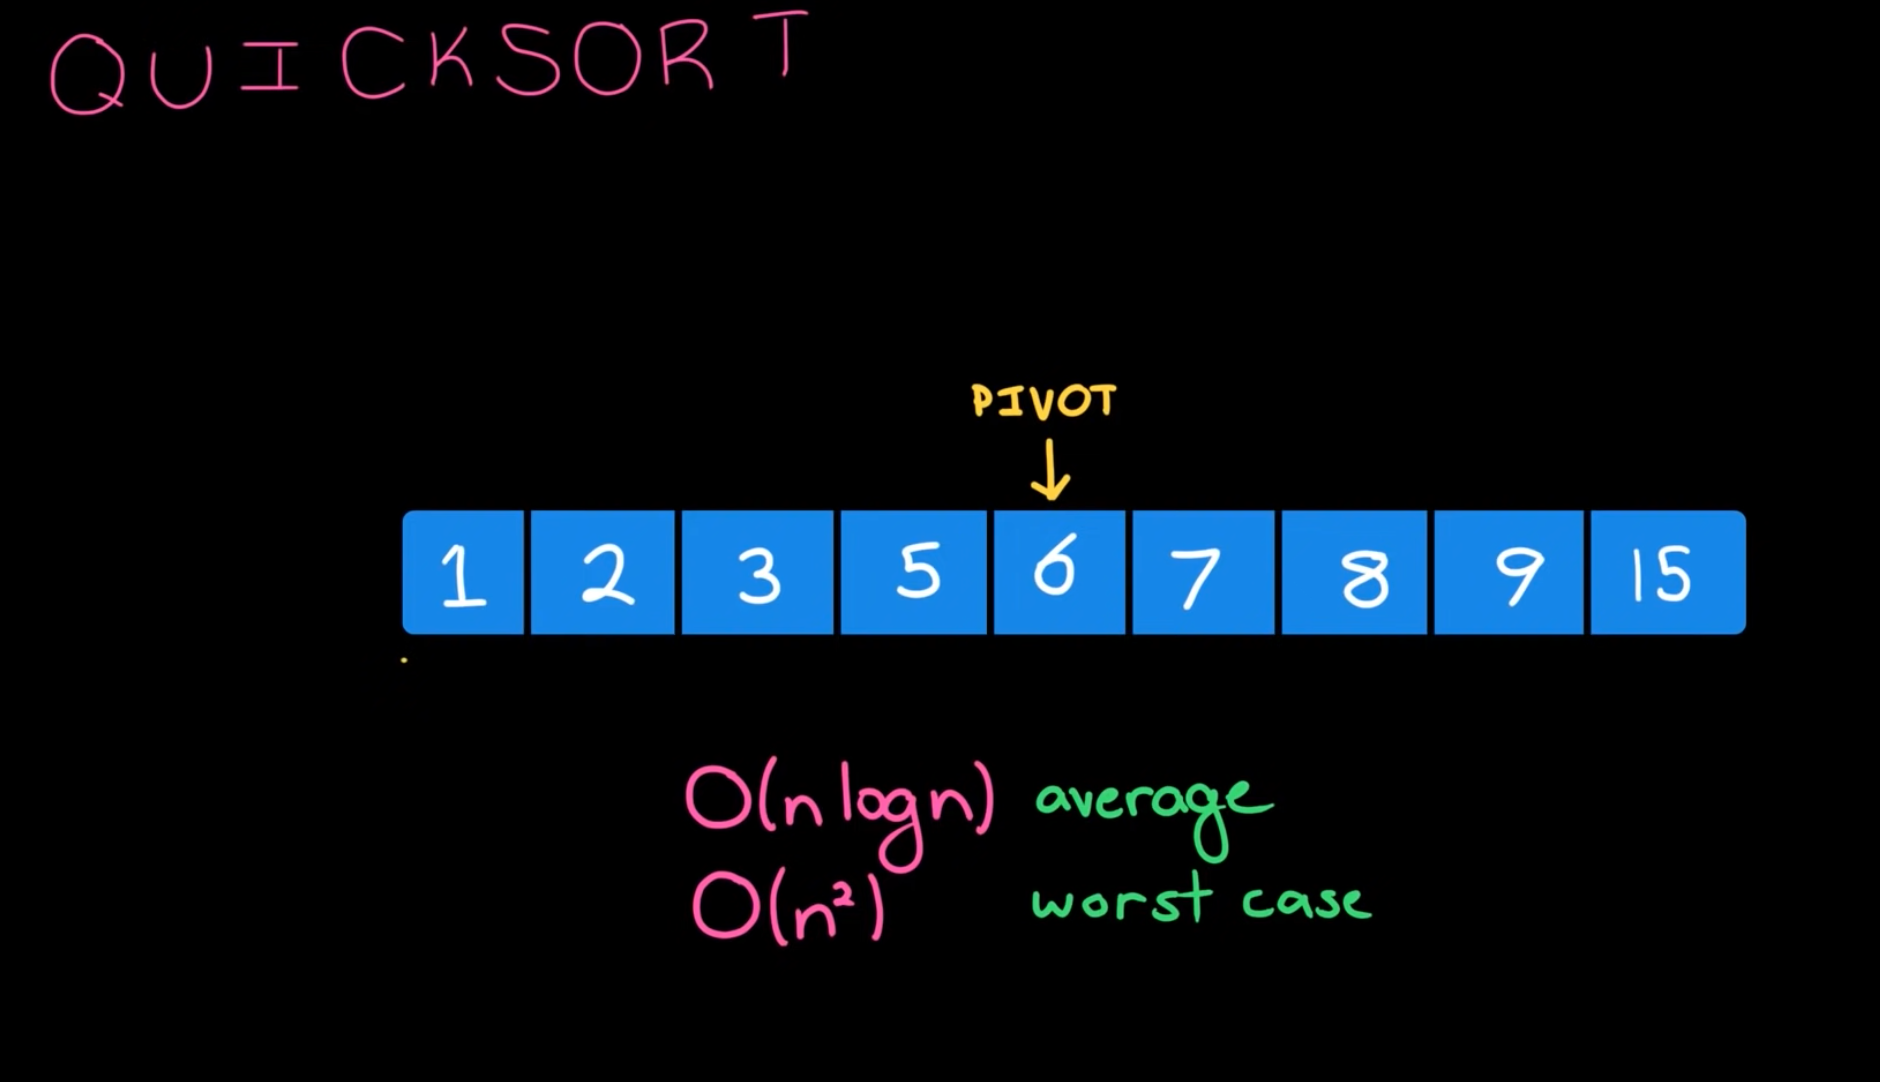 QUICKSORT
PIVOT
↓
1 2 3 5 6 7 8 9 15
O(n log n) average
O(n²) worst case